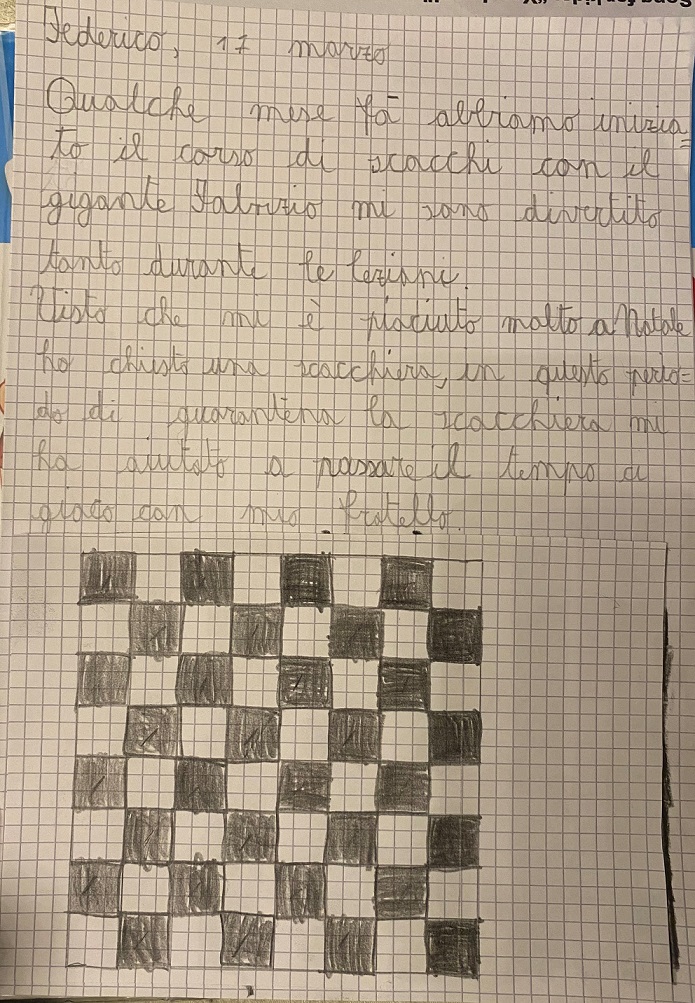 Federico, 17 marzo
Qualche mese fà abbiamo inizia=
to il corso di scacchi con il
gigante Fabrizio mi sono divertito
tanto durante le lezioni.
Visto che mi è piaciuto molto a Natale
ho chiesto una scacchiera, in questo perio=
do di quarantena la scacchiera mi
ha aiutato a passare il tempo a
gioco con mio fratello.